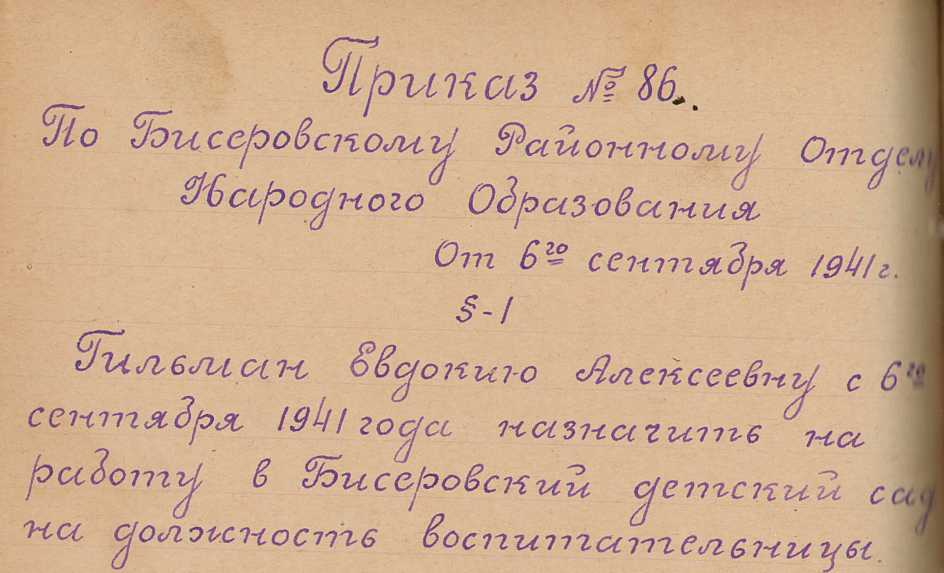 Приказ № 86.
По Бисеровскому Районному Отделу
Народного Образования
От 6го сентября 1941г.
§-1
Гильман Евдокию Алексеевну с 6го
сентября 1941 года назначить на
работу в Бисеровский детский сад
на должность воспитательницы.